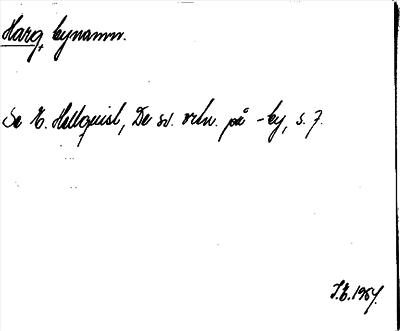 Harg, bynamn.
Se E. Hellquist, De sv. ortn. på -by, s. 7.
J.E. 1967.